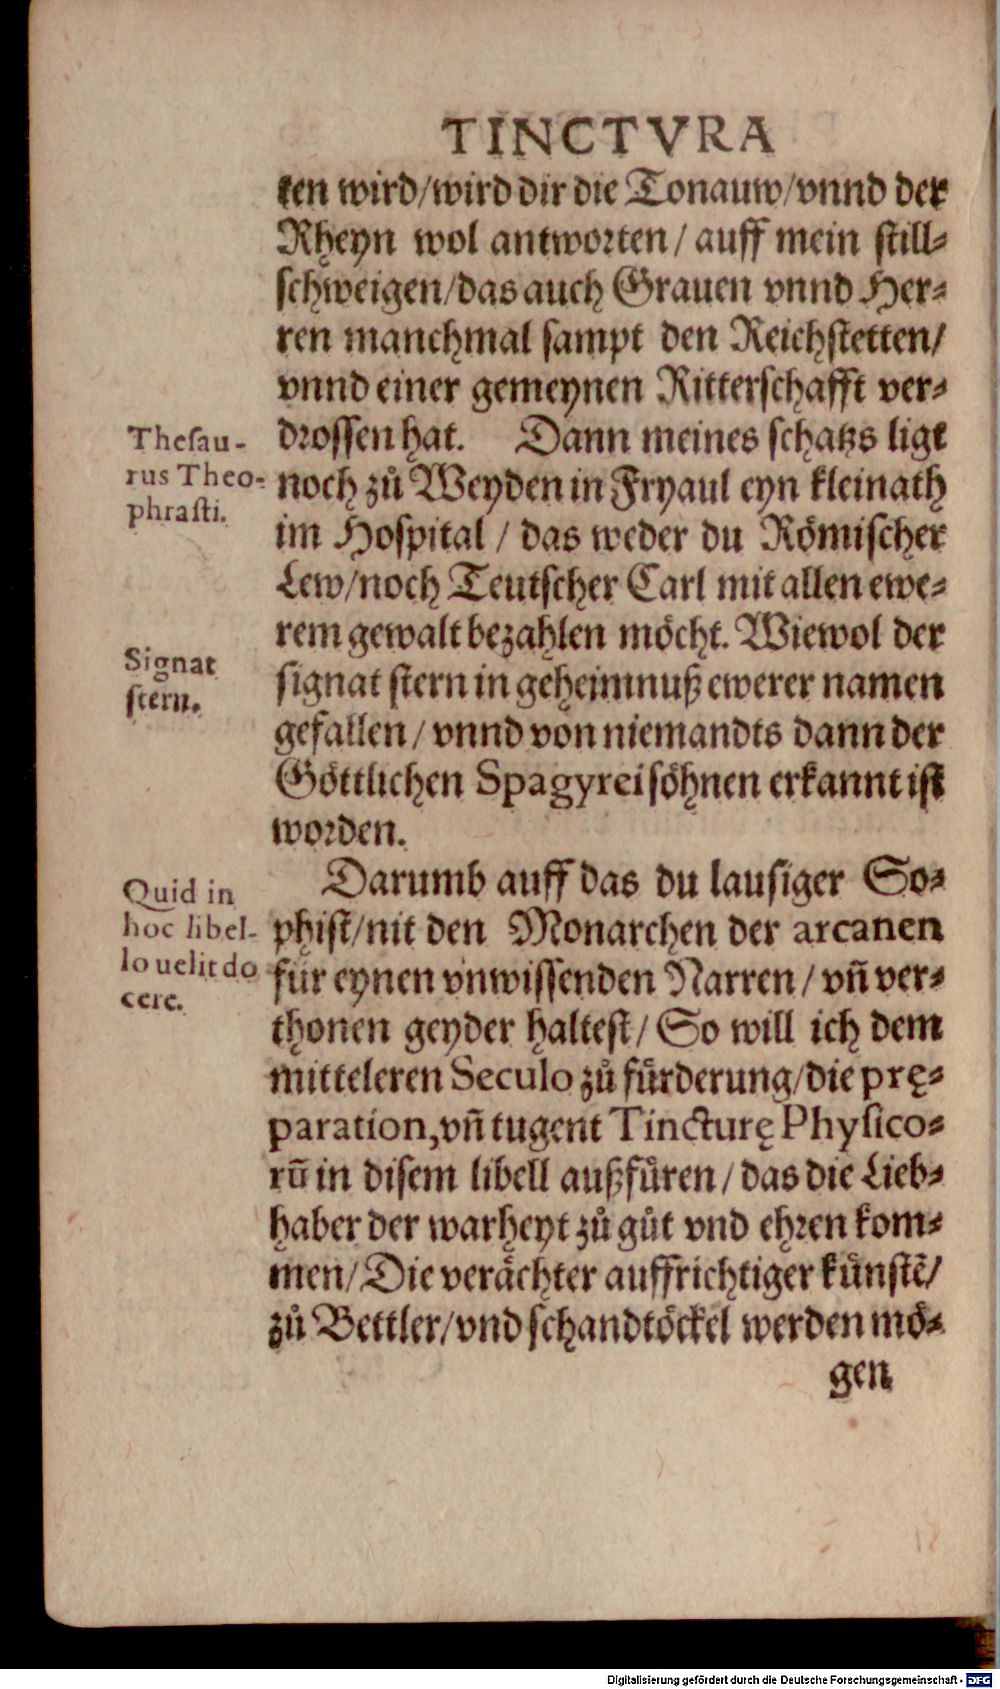 TINCTVRA
ken wird/wird dir die Tonauw/vnnd der
Rheyn wol antworten / auff mein still-
schweigen/das auch Grauen vnnd Her-
ren manchmal sampt den Reichstetten/
vnnd einer gemeynen Ritterschafft ver-
drossen hat. Dann meines schatzs ligt
Thesau-
rus Theo-
phrasti.
noch zů Weyden in Fryaul eyn kleinath
im Hospital / das weder du Römischer
Lew/noch Teutscher Carl mit allen ewe-
rem gewalt bezahlen möcht. Wiewol der
Signat
stern.
signat stern in geheimnuß ewerer namen
gefallen / vnnd von niemandts dann der
Göttlichen Spagyrei söhnen erkannt ist
worden.
Darumb auff das du lausiger So-
Quid in
hoc libel-
lo uelit do
cere.
phist/nit den Monarchen der arcanen
für eynen vnwissenden Narren / vñ ver-
thonen geyder haltest/ So will ich dem
mitteleren Seculo zů fürderung/die prę-
paration,vñ tugent Tincturę Physico-
rū in disem libell außfüren / das die Lieb-
haber der warheyt zů gůt vnd ehren kom-
men/Die verächter auffrichtiger künstẽ/
zů Bettler/vnd schandtöckel werden mö-
gen
Digitalisierung gefördert durch die Deutsche Forschungsgemeinschaft - DFG